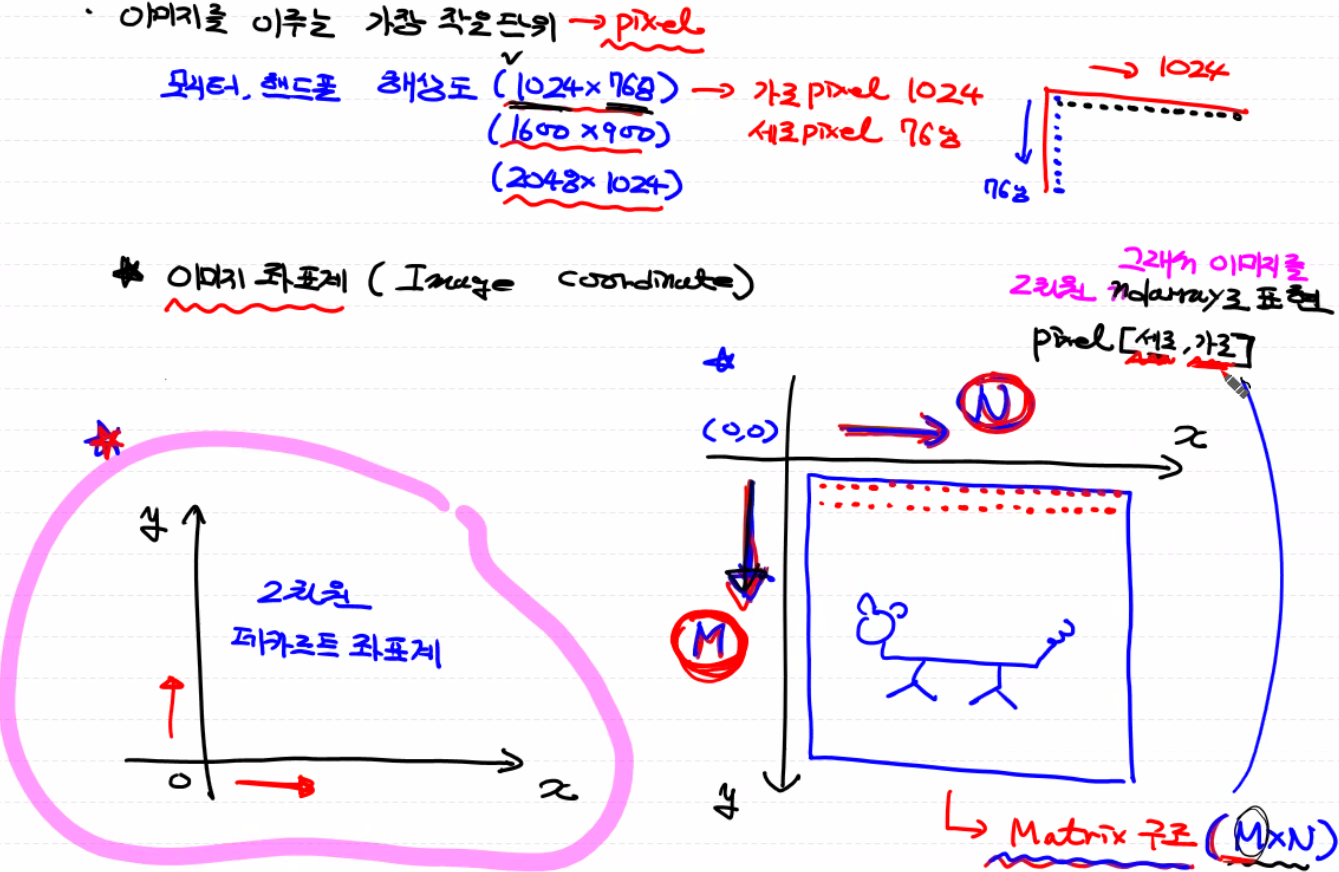 · 이미지를 이루는 가장 작은 단위 → pixel
모니터, 핸드폰 해상도 (1024×768) → 가로pixel 1024
(1600×900) 세로pixel 768
(2048×1024)
→ 1024
768
★ 이미지 좌표계 (Image coordinate)
그래서 이미지를
2차원 ndarray로 표현
pixel[세로,가로]
(0,0)
N
x
M
y
y
2차원
데카르트 좌표계
0
x
→ Matrix 구조 (M×N)